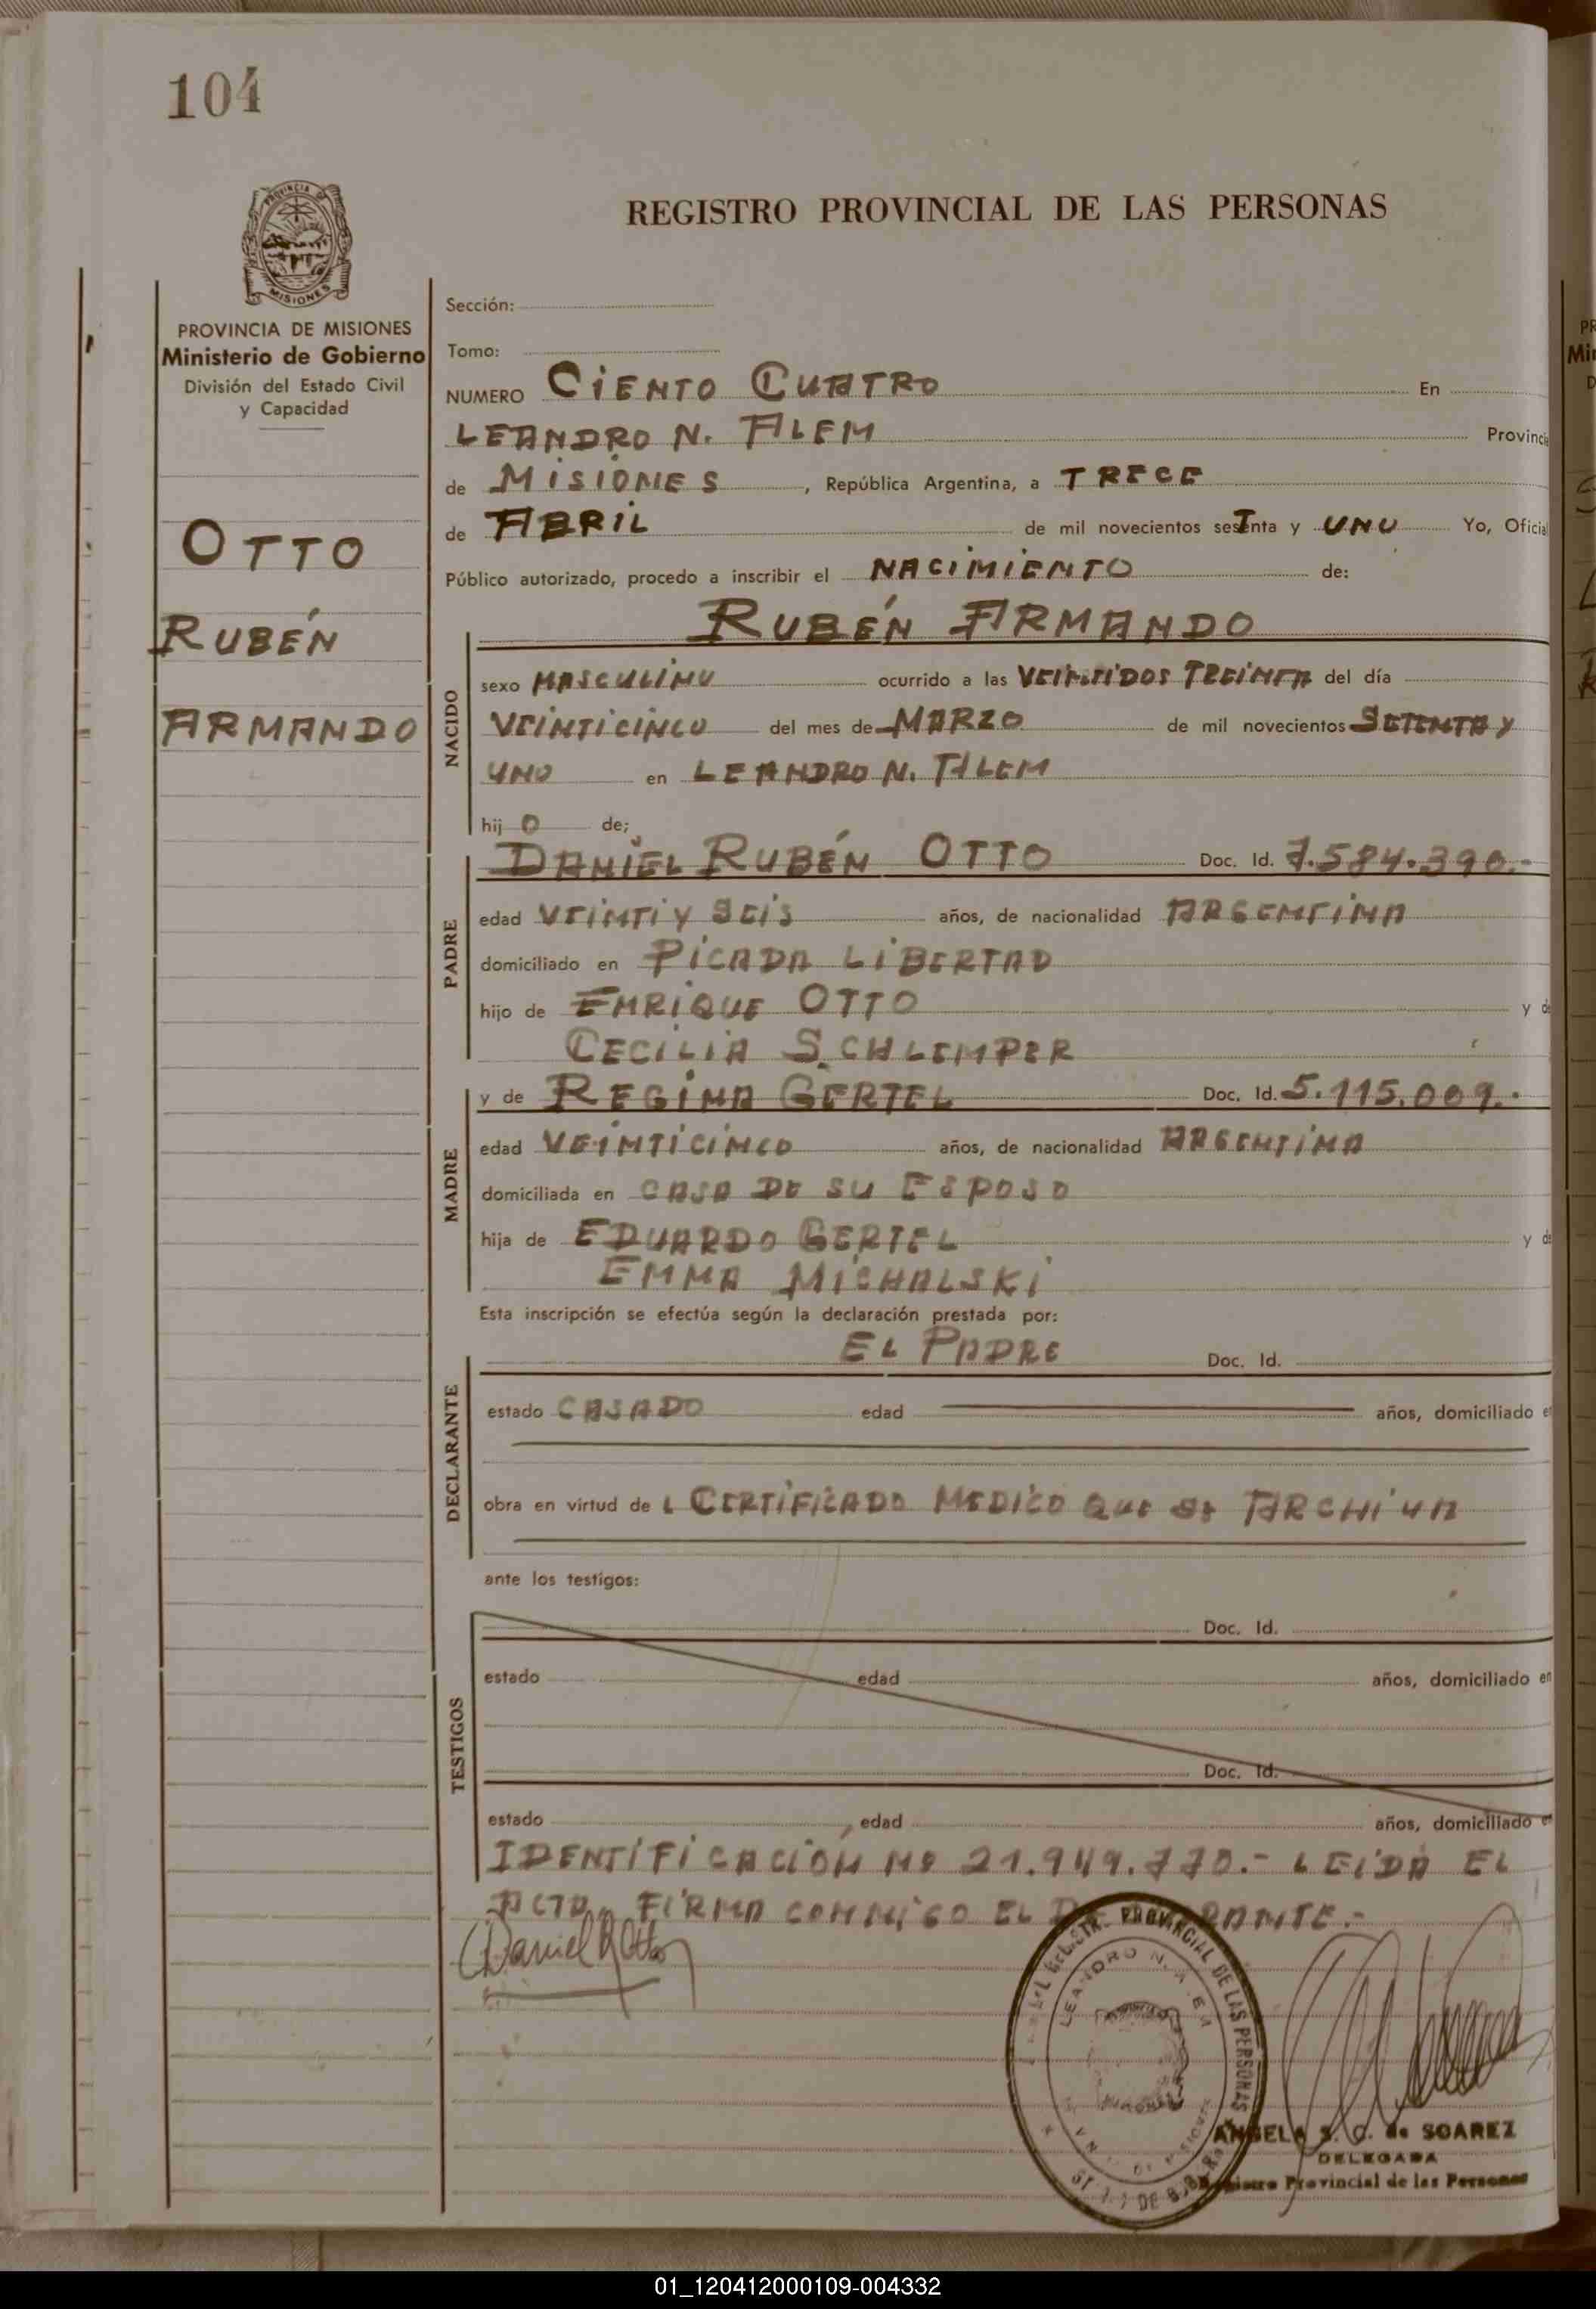 104
PROVINCIA DE
MISIONES
REGISTRO PROVINCIAL DE LAS PERSONAS
PROVINCIA DE MISIONES
Ministerio de Gobierno
División del Estado Civil
y Capacidad
OTTO
RUBÉN
ARMANDO
Sección:
Tomo:
NUMERO CIENTO CUATRO En
LEANDRO N. ALEM Provincia
de MISIONES, República Argentina, a TRECE
de ABRIL de mil novecientos sesTnta y UNO Yo, Oficial
Público autorizado, procedo a inscribir el NACIMIENTO de:
RUBÉN ARMANDO
NACIDO
sexo MASCULINO ocurrido a las VEINTIDOS TREINTA del día
VEINTICINCO del mes de MARZO de mil novecientos SETENTA y
UNO en LEANDRO N. ALEM
hij O de;
PADRE
DANIEL RUBÉN OTTO Doc. Id. 7.584.390.-
edad VEINTI Y SEIS años, de nacionalidad ARGENTINA
domiciliado en PICADA LIBERTAD
hijo de ENRIQUE OTTO y de
CECILIA SCHLEMPER
MADRE
y de REGINA GERTEL Doc. Id. 5.115.009.-
edad VEINTICINCO años, de nacionalidad ARGENTINA
domiciliada en CASA DE SU ESPOSO
hija de EDUARDO GERTEL y de
EMMA MICHALSKI
Esta inscripción se efectúa según la declaración prestada por:
DECLARANTE
EL PADRE Doc. Id.
estado CASADO edad años, domiciliado en
obra en virtud de L CERTIFICADO MEDICO QUE SE ARCHIVA
ante los testigos:
TESTIGOS
Doc. Id.
estado edad años, domiciliado en
Doc. Id.
estado edad años, domiciliado en
IDENTIFICACIÓN Nº 21.949.770.- LEIDA EL
ACTA, FIRMA CONMIGO EL DECLARANTE.-
Daniel R Otto
PROVINCIAL DE LAS PERSONAS
LEANDRO N. ALEM
ANGELA S. C. de SOAREZ
DELEGADA
Registro Provincial de las Personas
01_120412000109-004332